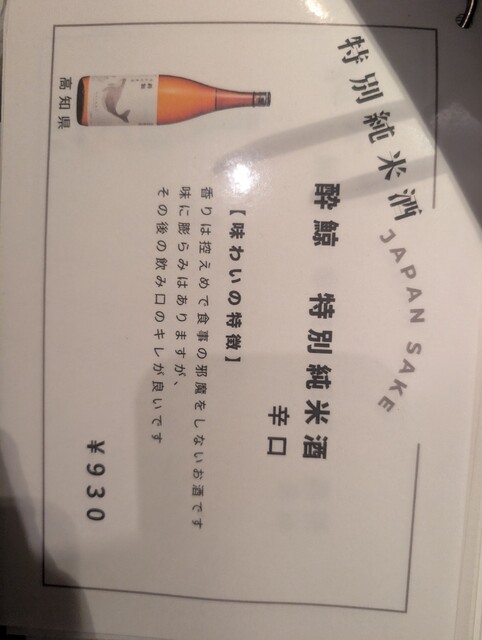 特別純米酒
JAPAN SAKE
酔鯨 特別純米酒
辛口
【味わいの特徴】
香りは控えめで食事の邪魔をしないお酒です
味に膨らみはありますが、
その後の飲み口のキレが良いです
高知県
¥930